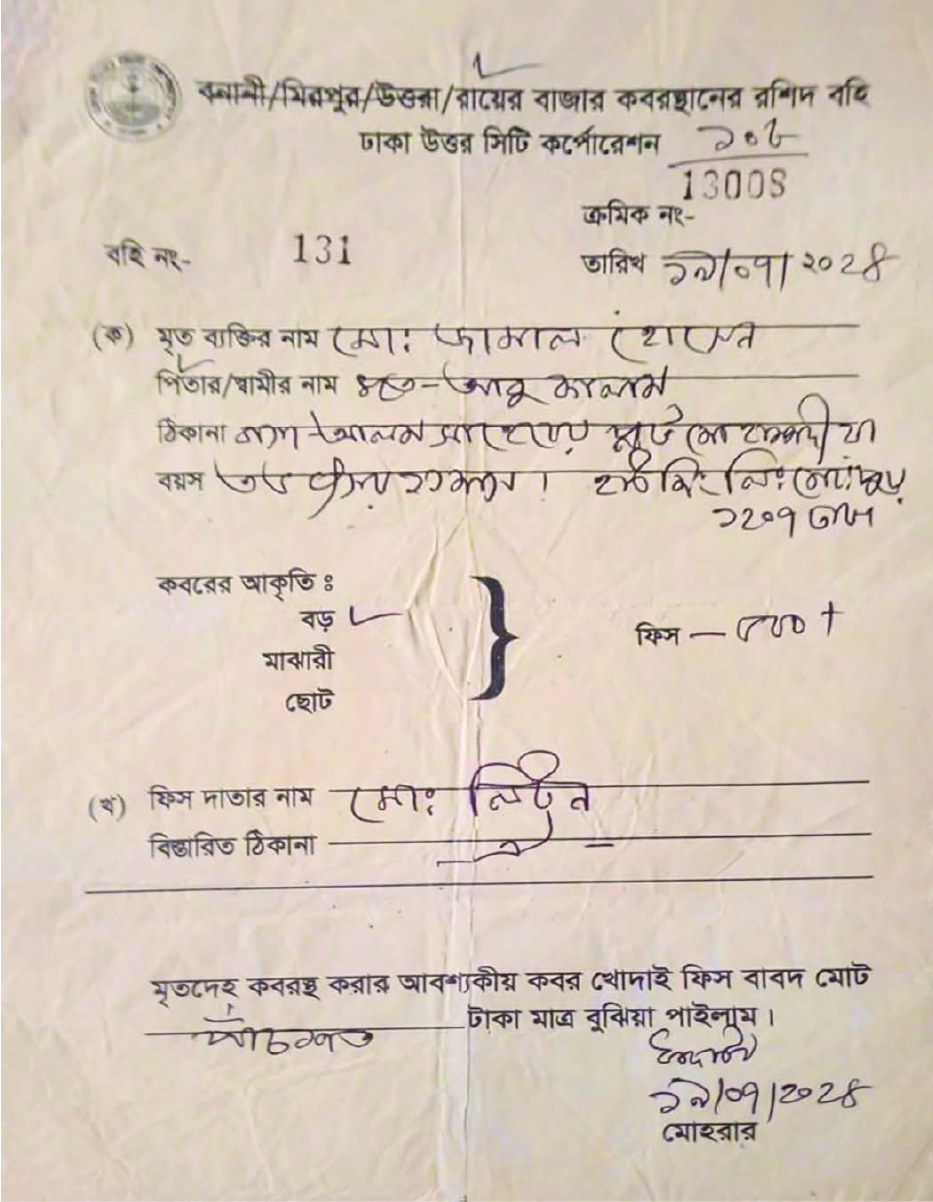 বনানী/মিরপুর/উত্তরা/রায়ের বাজার কবরস্থানের রশিদ বহি
ঢাকা উত্তর সিটি কর্পোরেশন ১০৮
13008
ক্রমিক নং-
বহি নং- 131
তারিখ ১৯/০৭/২০২৪
(ক) মৃত ব্যক্তির নাম মো: জামাল হোসেন
পিতার/স্বামীর নাম মৃত-আবু কালাম
ঠিকানা আলম সাহেবের
বয়স
১২০৭ ঢাকা
কবরের আকৃতি ঃ
বড়
মাঝারী
ছোট
ফিস — ৫০০
(খ) ফিস দাতার নাম মো: লিটন
বিস্তারিত ঠিকানা
মৃতদেহ কবরস্থ করার আবশ্যকীয় কবর খোদাই ফিস বাবদ মোট
পাঁচশত টাকা মাত্র বুঝিয়া পাইলাম।
১৯/০৭/২০২৪
মোহরার